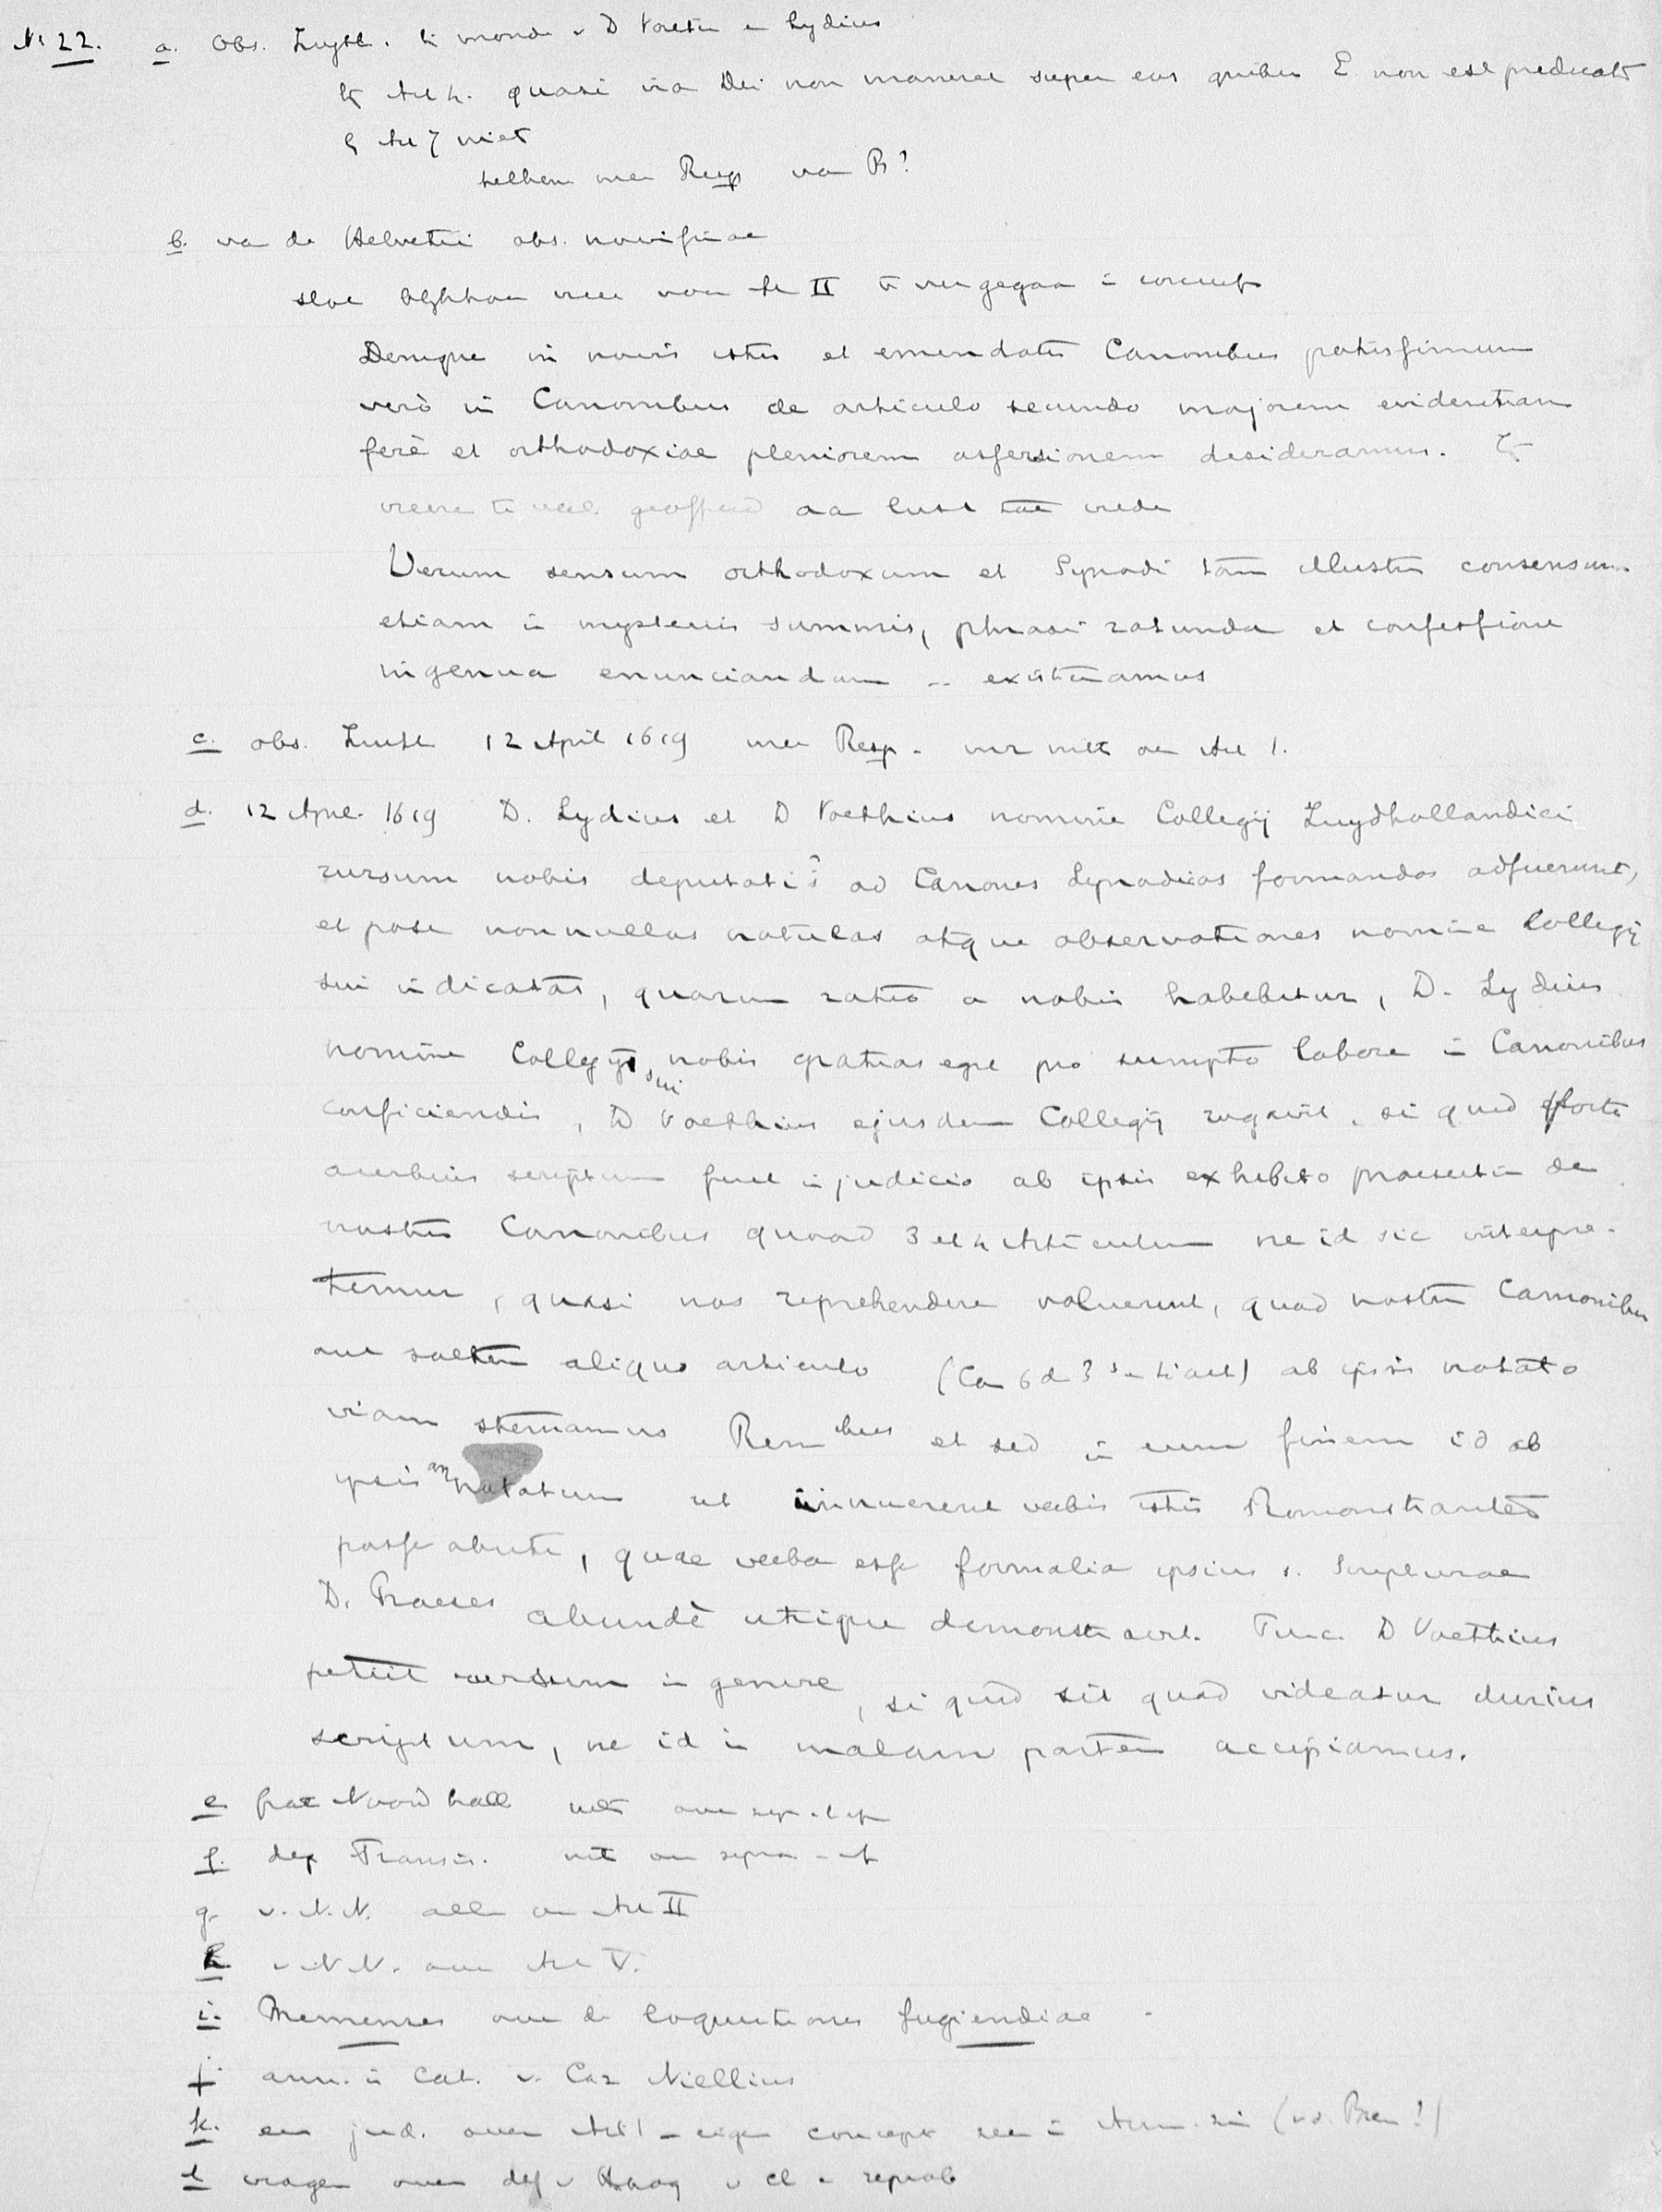 No 22. a. Obs. Zuydh. bij monde v D Voetiu en Lydius
bij Art 4. quasi ira Dei non maneret super eos quibus E. non est predicat
bij Art 7 niet
hebben Resp van B?
b. van de Helvetii obs. novissimae
art II in concept
Denique in novis istis et emendatis Canonibus potissimum
verò in Canonibus de articulo secundo majorem evidentiam
ferè et orthodoxiae pleniorem assersionem desideramus. Zij
vreezen te veel geofferd aan lust tot vrede
Verum sensum orthodoxum et Synodi tam illustris consensum
etiam in mysteriis summis, phrasi rotunda et confessione
ingenua enunciandum .. existimamus
c. obs. Zuidh 12 April 1619 Resp. Art 1.
d. 12 April 1619 D. Lydius et D Voethius nomine Collegij Zuydhollandici
rursum nobis deputatis ad Canones Synodicos formandos adfuerunt,
et post nonnullas notulas atque observationes nomine Collegij
sui indicatas, quarum ratio a nobis habebitur, D. Lydius
nomine Collegij sui nobis gratias egit pro sumpto labore in Canonibus
conficiendis, D Voethius ejusdem Collegij rogavit, si quid forte
acerbius scriptum fuit in judicio ab ipsis exhibito praesertim de
nostris Canonibus quoad 3 et 4 Articulum ne id sic interpre-
temur, quasi nos reprehendere voluerint, quod nostris Canonibus
aut saltem aliquo articulo (Can 6 d 3 en 4 art) ab ipsis notato
viam sternamus Rem bus et sed in eum finem id ab
ipsis annotatum ut innuerent verbis istis Remonstrantes
posse abuti, quae verba esse formalia ipsius s. Scripturae
D. Praeses abundè utique demonstravit. Tunc D Voethius
petiit rursum in genere, si quid sit quod videatur durius
scriptum, ne id in malam partem accipiamus.
e frat Noord holl
f. dep Transis.
g. v. N.N. alleen over Art II
h. v N N. over Art V.
i. Bremenses over de loquutiones fugiendiae
j. ann. in Cat. v. Car Niellius
k. een jud. over Art 1 - eigen concept zeer in Arm. zin (v.d. Brem?)
l vragen over def v Haag v el en reprob